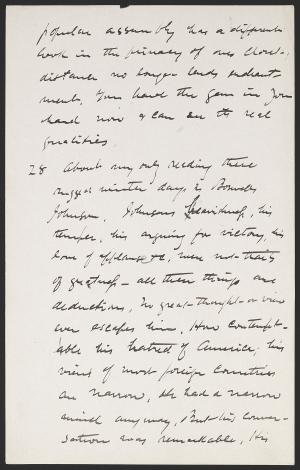 popular assembly has a different
look in the privacy of ones closet;
distance no longer lends enchant-
ment. You have the gem in your
hand now & can see its real
qualities.
28 About my only reading these
rugged winter days, is Boswells
Johnson. Johnsons his
temper, his arguing for victory, his
love of applause &c, were not traits
of greatness — all these things are
deductions. No great thought or view
ever escapes him. How contempt-
able his hatred of America; his
views of most foreign countries
are narrow. He had a narrow
mind any way. But his conver-
sation was remarkable. His